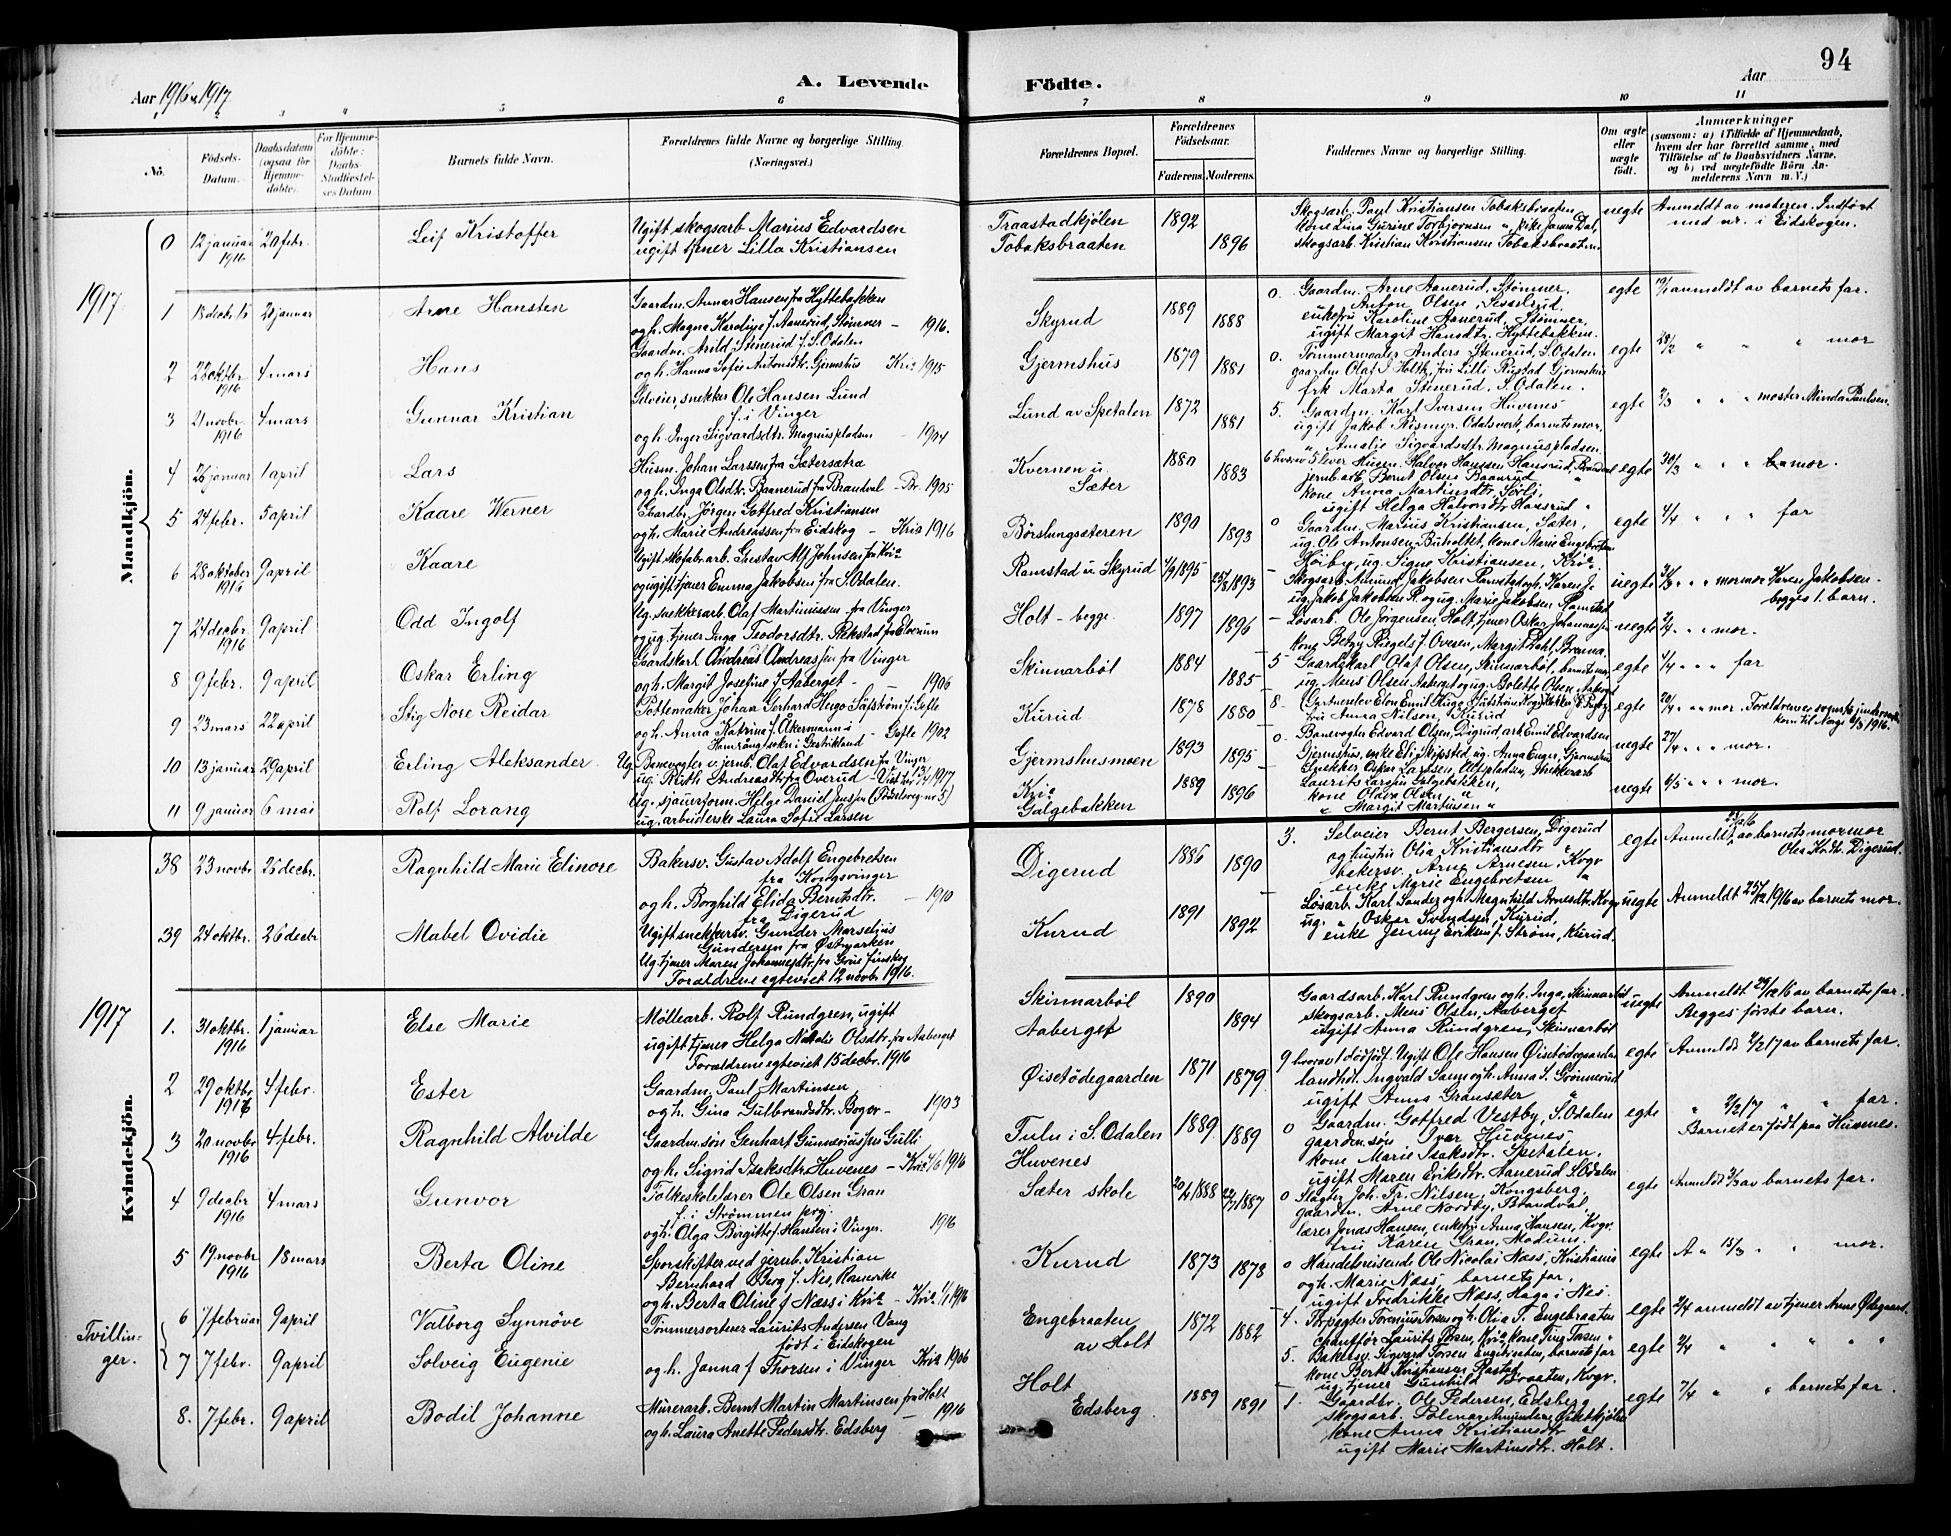 94
Aar 1916 & 1917.
A. Levende Födte.
Aar
1 2 3 4 5 6 7 8 9 10 11
No.
Födsels-Datum.
Daabsdatum (ogsaa for Hjemme-döbte).
For Hjemme-döbte: Daabs-Stadfæstel-ses Datum.
Barnets fulde Navn.
Forældrenes fulde Navne og borgerlige Stilling. (Næringsvei.)
Forældrenes Bopæl.
Forældrenes Födselsaar.
Faderens. Moderens.
Faddernes Navne og borgerlige Stilling.
Om ægte eller uægte födt.
Anmærkninger
(saasom: a) i Tilfælde af Hjemmedaab, hvem der har forrettet samme, med Tilföielse af to Daabsvidners Navne, og b) ved uægtefödte Börn An-melderens Navn m. V.)
Mandkjön.
0 12 januar 1916 20 febr. Leif Kristoffer
Ugift skogsarb Marius Edvardsen
ugift tjener Lilla Kristiansen
Traastadkjølen 1892
Tobaksbraaten 1896
Skogsarb. Paul Kristiansen Tobaksbraaten
skogsarb. Kristian Kristiansen Tobaksbraaten
uegte Anmeldt av moderen. Indført
med nr. i Eidskogen.
1917.
1 18 decbr 16 28 januar Arne Hansten
Gaardm. Annar Hansen fra Hyttebakken
og h. Magna Karoline f. Aanerud, Stømner – 1916.
Skyrud 1889 1888
0. Gaardm. Arne Aanerud, Stømner,
Anton Olsen, Sesselrud,
enkefru Karoline Aanerud, Stømner,
ugift Margit Hansdtr. Hyttebakken.
egte anmeldt av barnets far.
2 28 oktbr 1916 4 mars Hans
Gaardm. Arild Stenerud f. S. Odalen
og h. Hanna Sofie Antonsdtr. Gjermshus Kria 1915
Gjermshus 1879 1881
0. Tømmermaaler Anders Stenerud, S. Odalen
gaardm Olaf S. Holth, fru Lilli Rustad Gjermshus
frk Marta Stenerud, S. Odalen.
egte " " " mor
3 21 novbr 1916 4 mars Gunnar Kristian
Selveier, snekker Ole Hansen Lund
f. i Vinger
og h. Inger Sigvardsdtr. Magnuspladsen – 1904
Lund av Spetalen 1872 1881
5. Gaardm. Karl Iversen Huvenes
ugift Jakob Rismyr. Odalsverk, barnets mor,
" Amalie Sigvardsdtr Magnuspladsen.
egte 2/3 " " " moster Minda Paulsen.
4 26 januar 1 april Lars
Husm. Johan Larssen fra Sætersætra
og h. Inga Olsdtr. Baanerud fra Brandval – Br. 1905
Kvernen u. Sæter 1880 1883
6 hvorav 5 lever Husm. Halvor Hanssen Hansrud, Brandval
jernb.arb. Bernt Olsen Baanrud "
kone Anna Martinsdtr. Sørli,
ugift Helga Halvorsdtr Hansrud "
egte 30/3 " " " mor.
5 24 febr. 5 april Kaare Werner
Gaardbr. Jörgen Gotfred Kristiansen
og h. Marie Andreassen fra Eidskog – Kria 1916
Börslungsæteren 1890 1893
0 Gaardm. Marius Kristiansen, Sæter,
ug. Ole Antonsen Buholtet, kone Marie Engebretsen
Høiby, ug. Signe Kristiansen, Kria.
egte 4/4 " " " far
6 28 oktober 1916 9 april Kaare
Ugift skofabr.arb. Gustav Alf Johnsen fra Kria
og ugift tjener Emma Jakobsen fra S. Odalen.
Ramstad u Skyrud 4/9 1895 25/8 1893
– Skogsarb. Amund Jakobsen Ramstad og h. Karen J.
ug. Jakob Jakobsen R. og ug. Marie Jakobsen Ramstad
uegte " " " mormor Karen Jakobsen –
begges 1. barn.
7 24 decbr. 1916 9 april Odd Ingolf
Ug. Snekkerarb. Olaf Martinussen fra Vinger
og ug. tjener Inga Teodorsdtr. Rekstad fra Elverum
Holt – begge. 1897 1896
– Løsarb. Ole Jørgensen, Holt, tjener Oskar Johannessen
uegte 7/4 " " " mor.
8 9 febr. 9 april Oskar Erling
Gaardskarl Andreas Andreassen fra Vinger
og h. Margit Josefine f. Aaberget – 1906
Skinnarbøl 1884 1885
5 Gaardskarl Olaf Olsen, Skinnarbøl, barnets mor,
ug. Mens Olsen Aaberget og ug. Bolette Olsen, Aaberget
egte 4/4 " " " far
9 23 mars 22 april Stig Nore Reidar
Pottemaker Johan Gerhard Hugo Säfström f. i Gefle
og h. Anna Katrina f. Åkermann i
Hamrånge sokn i Gestrikland – Gefle 1902
Kurud 1878 1880
fru Anna Nilson, Kurud
egte 20/4 " " " mor.
kom til Norge 1916.
10 13 januar 29 april Erling Aleksander.
Ug. Banevogter v. jernb. Olaf Edvardsen fra Vinger
ug. Ruth Andreasdtr. fra Overud
Gjermshusmoen 1893 1895
0 – Banevogter Edvard Olsen, Digrud, arb. Emil Edvardsen
uegte 27/4 " " " mor.
11 9 januar 6 mai Rolf Lorang
Ug. stjauerform. Helge Daniel Jensen
ug. arbeiderske Laura Sofie Larsen
Kria 1889
Galgebakken 1896
Snekker Oskar Larssen, Altspladsen, Snekkerarb
Laurits Larssen Galgebakken,
kone Oldea Olsen "
" Margit Martinsen "
uegte 6/5 " " " mor.
Kvindekjön.
38 23 novbr 25 decbr. Ragnhild Marie Elinore
Bakersv. Gustav Adolf Engebretsen
fra Kongsvinger
og h. Borghild Elida Berntsdtr. – 1910
fra Digerud
Digerud 1886 1890
3. Selveier Bernt Bergersen, Digerud
og hustru Olia Kristiansdtr "
bakersv. Arne Arnesen, Kvgv
enke Marie Engebretsen "
egte Anmeldt av barnets mormor
Olea Krdtr. Digerud.
39 24 oktbr. 26 decbr Mabel Ovidie
Ugift snekkersv. Gunder Marselius
Gundersen fra Østmarken
Ug. tjener Maren Johannesdtr. fra Grue Finskog
Forældrene egteviet 12 novbr 1916.
Kurud 1891 1892
– Løsarb. Karl Sander og h. Magnhild Arnesdtr. Kvgv
ug. " Oskar Svendsen, Kurud,
enke Jenny Eriksen f. Strøm, Kurud.
uegte Anmeldt 25/12 1916 av barnets mor.
1917
1. 31 oktbr. 1916 1 januar Else Marie
Möllearb. Rolf Rundgren, ugift
ugift tjener Helga Natalie Olsdtr. fra Aaberget
Forældrene egteviet 15 decbr. 1916
Skinnarbøl 1890
Aaberget 1894
Gaardsarb. Karl Rundgren og h. Inga, Skinnarbøl
skogsarb. Mens Olsen, Aaberget
ugift Anna Rundgren, Skinnarbøl
uegte Anmeldt av barnets far.
Begges første barn.
2 29 oktbr 1916 4 febr. Ester
Gaardm. Paul Martinsen
og h. Gina Gulbrandsdtr. Boger – 1903
Øisetødegaarden 1871 1879
9 hvorav 1 dødfødt. Ugift Ole Hansen Øisetødegaarden
landhdl. Ingvald Sanne og h. Anna S. Grønnerud
ugift Anna Gransæter "
egte Anmeldt 2/2 17 av barnets far.
3 20 novbr 1916 4 febr. Ragnhild Alvilde
Gaardm.søn Genhart Gunneriussen Gulli
og h. Sigrid Isaksdtr. Huvenes – Kria 4/6 1916
Tuln i S. Odalen 1889
Huvenes 1889
0 Gaardm. Gotfred Vestby, S. Odalen
gaardm.søn Ivar Huvenes,
kone Marie Isaksdtr. Spetalen.
ugift Maren Eriksdtr. Aanerud S. Odalen
egte " 2/2 17 " " far.
Barnet er født paa Huvenes.
4 9 decbr 1916 4 mars Gunvor
Folkeskolelærer Ole Olsen Gran
f. i Strømmen prg.
og h. Olga Birgitte f. Hansen i Vinger. 1916
Sæter skole 1888 1887
0 Slagter Joh. Fr. Nilsen, Kongsberg.
gaardm. Arne Nordby, Brandval,
lærer Jonas Hansen, enkefru Anna Hansen, Kvgv.
fru Karen Gran, Modum.
egte Anmeldt 3/3 av barnets far.
5 19 novbr 1916 18 mars Berta Oline
Sporskifter ved jernb. Kristian
Bernhard Berg f. Nes, Romerike
og h. Berta Oline f. Næss i Kria – Kria 1/1 1916
Kurud 1873 1878
0 Handelsreisende Ole Nicolai Næss, Kristiania
og h. Marie Næss, barnets far.
ugift Fredrikke Næss, Haga i Nes.
egte A " 15/3 " " mor.
Tvillin-ger.
6 7 februar 9 april Valborg Synnöve
Tömmersorterer Laurits Andersen Vang
født i Eidskogen
7 7 febr. 9 april Solveig Eugenie
og h. Janna f. Thorsen i Vinger Kria 1906
Engebraaten av Holt 1872 1882
4. Forpagter Torenius Torsen og h. Olia T. Engebraaten
chauffør Laurits Torsen, Kria, kone Jenny Torsen "
egte 2/4 anmeldt av tjener Anne Ødegaard.
5. Bakersv. Sigvard Torsen Engebraaten, barnets far
kone Berte Kristiansen, Rastad
ug. tjener Gunhild Braaten, Kvgv.
egte 2/4 " " " "
8. 7 febr. 9 april Bodil Johanne
Murerarb. Bernt Martin Martinsen fra Holt
og h. Laura Anette Pedersdtr. Edsberg – 1916
Holt 1889
Edsberg 1891
1. Gaardbr. Ole Pedersen, Edsberg,
kone Anna Kristiansdtr "
ugift Marie Martinsdtr. Holt.
egte 7/4 " " barnets far.